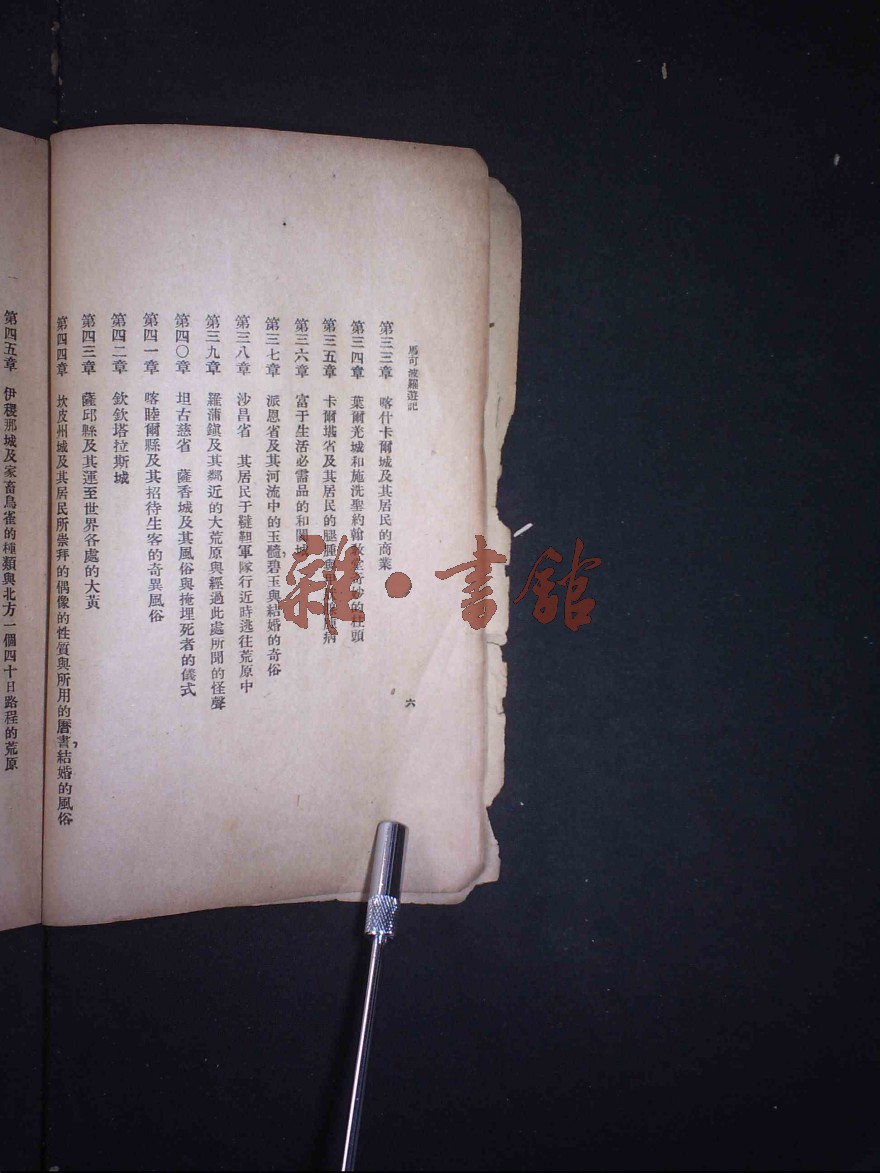 馬可波羅遊記
第三三章 喀什卡爾城及其居民的商業
第三四章 葉爾光城和施洗聖約翰教堂奇妙的柱頭
第三五章 卡爾堪省及其居民的腿腫與病
第三六章 富于生活必需品的和闐城
第三七章 派恩省及其河流中的玉髓,碧玉與結婚的奇俗
第三八章 沙昌省 其居民于韃靼軍隊行近時逃往荒原中
第三九章 羅蒲鎮及其鄰近的大荒原與經過此處所聞的怪聲
第四〇章 坦古慈省 薩香城及其風俗與掩埋死者的儀式
第四一章 喀睦爾縣及其招待生客的奇異風俗
第四二章 欽欽塔拉斯城
第四三章 薩邱縣及其運至世界各處的大黃
第四四章 坎皮州城及其居民所崇拜的偶像的性質與所用的曆書,結婚的風俗
六
第四五章 伊稷那城及家畜鳥雀的種類與北方一個四十日路程的荒原
雜·書館